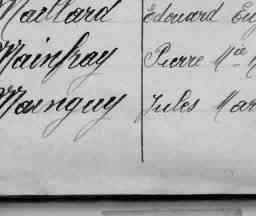 Maillard Edouard Eug
Mainfray Pierre Mie
Mainguy Jules Mar